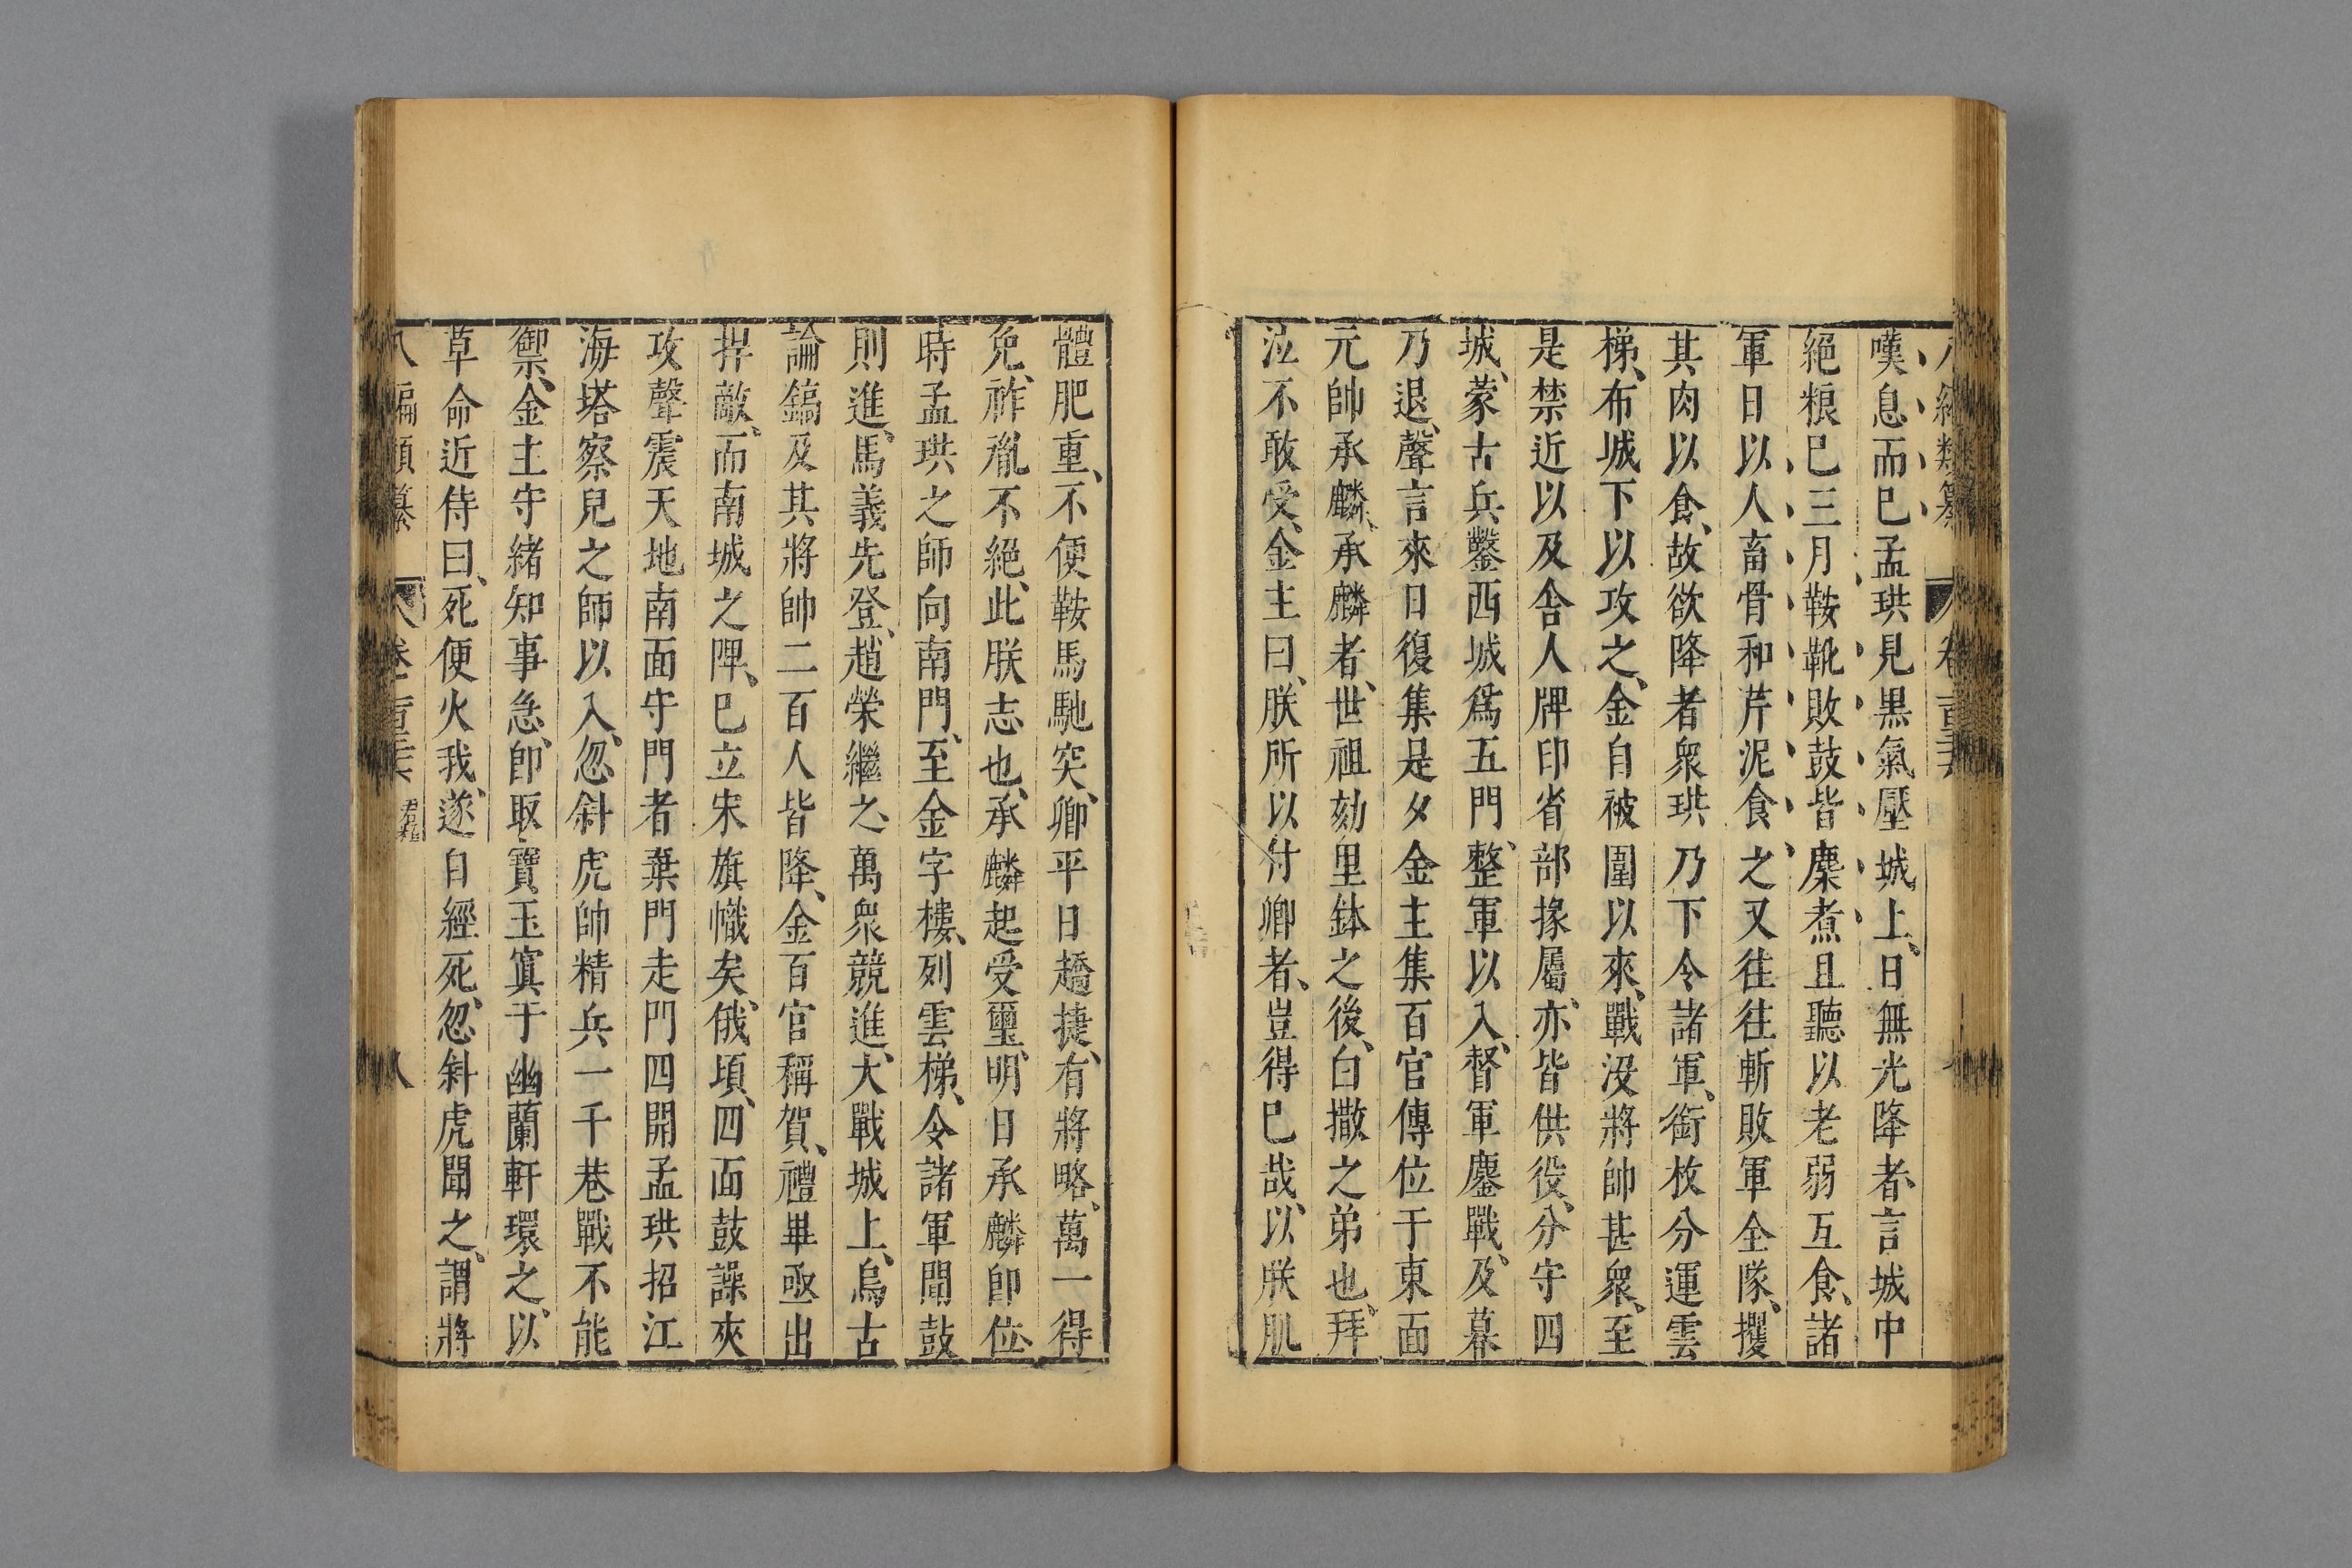 嘆息而已孟珙見黑氣壓城上日無光降者言城中
絕粮已三月鞍靴敗鼓皆麋煮且聽以老弱互食諸
軍日以人畜骨和芹泥食之又往往斬敗軍全隊攫
其肉以食故欲降者衆珙乃下令諸軍銜枚分運雲
梯布城下以攻之金自被圍以來戰沒將帥甚衆至
是禁近以及舍人牌印省部掾屬亦皆供役分守四
城蒙古兵鑿西城爲五門整軍以入督軍鏖戰及暮
乃退聲言來日復集是夕金主集百官傳位于東面
元帥承麟承麟者世祖劾里鉢之後白撒之弟也拜
泣不敢受金主曰朕所以付卿者豈得已哉以朕肌
體肥重不便鞍馬馳突卿平日趫捷有將略萬一得
免祚胤不絕此朕志也承麟起受璽明日承麟卽位
時孟珙之師向南門至金字樓列雲梯令諸軍聞鼓
則進馬義先登趙榮繼之萬衆競進大戰城上烏古
論鎬及其將帥二百人皆降金百官稱賀禮畢亟出
捍敵而南城之陴已立宋旗幟矣俄頃四面鼓譟夾
攻聲震天地南面守門者棄門走門四開孟珙招江
海塔察兒之師以入忽斜虎帥精兵一千巷戰不能
禦金主守緒知事急卽取寶玉寘于幽蘭軒環之以
草命近侍曰死便火我遂自經死忽斜虎聞之謂將
八編類纂 卷 八